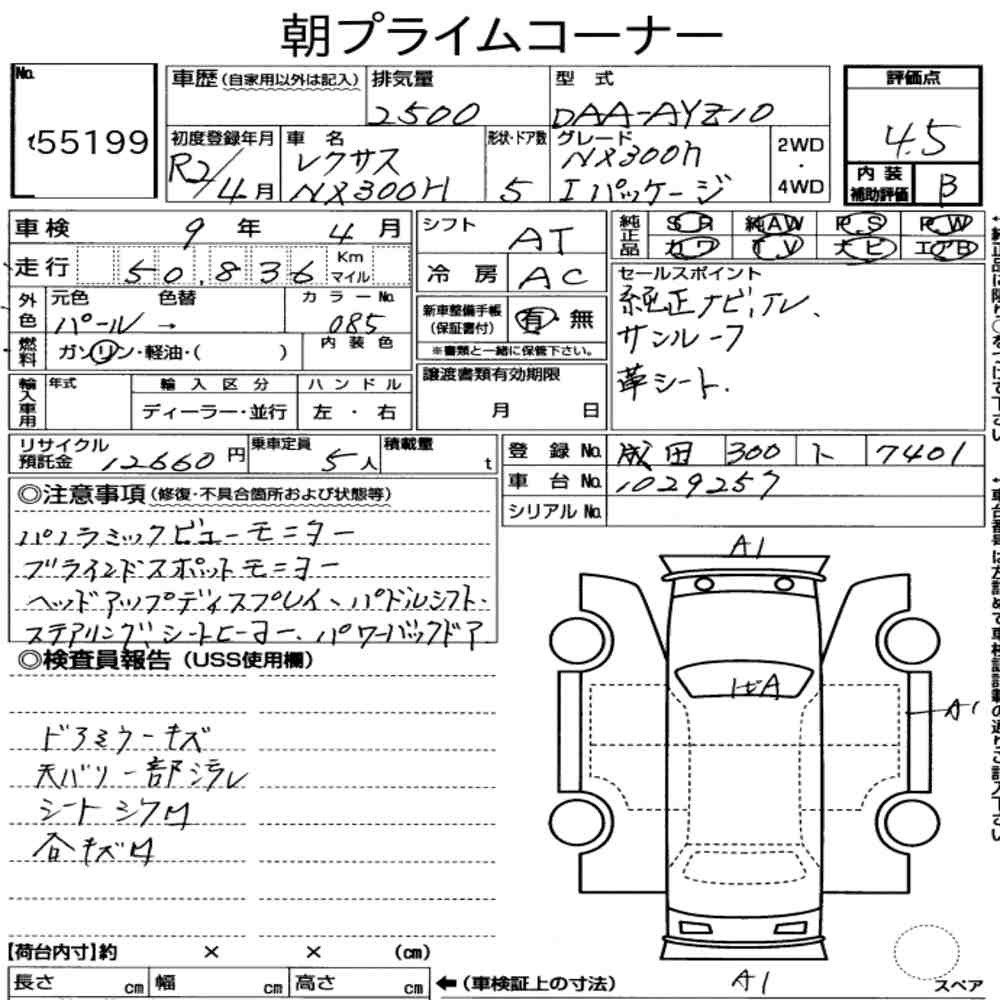 朝プライムコーナー
No. t55199
車歴(自家用以外は記入) 排気量 2500 型式 DAA-AYZ10
初度登録年月 R2/4月 車名 レクサス NX300H 形状・ドア数 5 グレード NX300h Iパッケージ 2WD・4WD
評価点 4.5
内装補助評価 B
車検 9年 4月
走行 50,836 Km マイル
外色 元色 パール → 色替 カラーNo. 085
燃料 ガソリン・軽油・( ) 内装色
輸入車用 年式 輸入区分 ディーラー・並行 ハンドル 左・右
シフト AT
冷房 AC
新車整備手帳(保証書付) 有・無
※書類と一緒に保管下さい。
譲渡書類有効期限 月 日
純正品 SR 純AW PS PW
カワ TV ナビ エアB
セールスポイント
純正ナビ,TV、
サンルーフ
革シート.
リサイクル預託金 12660円 乗車定員 5人 積載量 t
登録No. 成田 300 ト 7401
車台No. 1029257
シリアルNo.
◎注意事項(修復・不具合箇所および状態等)
パノラミックビューモニター
ブラインドスポットモニター
ヘッドアップディスプレイ、パドルシフト.
ステアリング、シートヒーター、パワーバックドア.
◎検査員報告(USS使用欄)
ドアミラーキズ
天バリ一部汚レ
シートシワM
合キズM
A1
A
A1
A1
スペア
【荷台内寸】約 × × (cm)
長さ cm 幅 cm 高さ cm ←(車検証上の寸法)